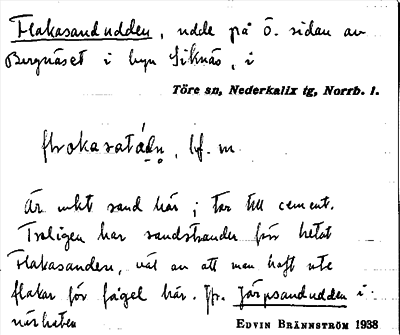 Flakasandudden, udde på Ö. sidan av
Bergnäset i byn Siknäs, i
Töre sn, Nederkalix tg, Norrb. l.
bf. m.
Är mkt sand här; tar till cement.
Troligen har sandstranden förr hetat
Flakasanden, väl av att man haft ute
flakar för fågel här. Jfr. Järpsandudden i
närheten
EDVIN BRÄNNSTRÖM 1938